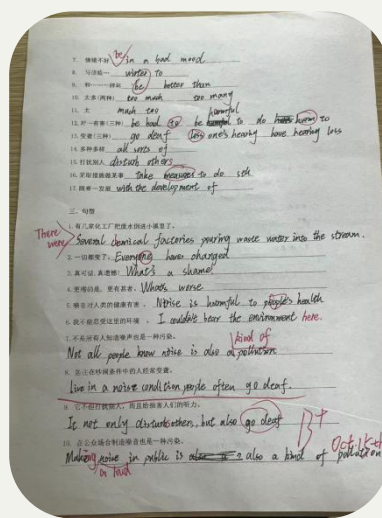 7. 情绪不好 be in a bad mood
8. 写信给… writer to
9. 和……一样好 be better than
10. 太多(两种) too much too many
11. 太 much too harmful
12. 对…有害(三种) be bad to to do harm to
13. 变聋(三种) go deaf loss one's hearing have hearing loss
14. 多种多样 all sorts of
15. 打扰别人 disturb others
16. 采取措施做某事 take measures to do sth
17. 随着…发展 with the development of
三、句型
1. 有几家化工厂把废水倒进小溪里了。
There were Several chemical factories pouring waste water into the stream.
2. 一切都变了。 Everyone have changed
3. 真可惜,真遗憾! What's a shame!
4. 更糟的是,更有甚者。 Whoos worse
5. 噪音对人类的健康有害。 Noise is harmful to people's health
6. 我不能忍受这里的环境。 I couldn't bear the environment here.
7. 不是所有人知道噪声也是一种污染。
Not all people know noise is also a kind of pollution
8. 在吵闹条件中的人经常变聋。
Live in a noise condition people often go deaf.
9. 它不但打扰别人,而且给损害人们的听力。
It not only disturb others, but also go deaf
B+
10. 在公众场合制造噪音也是一种污染。
Making noise in public is also a kind of pollution
a loud
Oct.15th